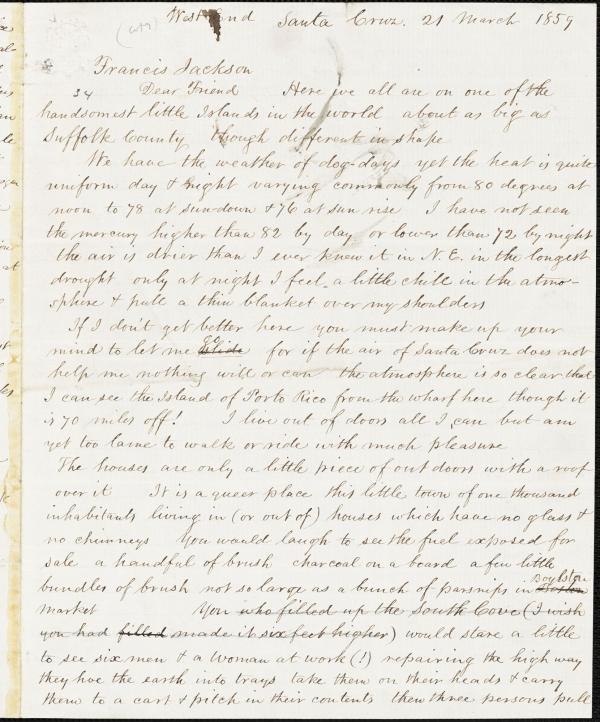 West End Santa Cruz. 21 March 1859
Francis Jackson
34 Dear Friend Here we all are on one of the
handsomest little Islands in the world about as big as
Suffolk County though different in shape
We have the weather of dog-days yet the heat is quite
uniform day & night varying commonly from 80 degrees at
noon to 78 at sundown & 76 at sun rise I have not seen
the mercury higher than 82 by day or lower than 72 by night
the air is drier than I ever knew it in N.E. in the longest
drought only at night I feel a little chill in the atmo-
sphere & pull a thin blanket over my shoulders
If I don't get better here you must make up your
mind to let me go for if the air of Santa Cruz does not
help me nothing will or can the atmosphere is so clear that
I can see the Island of Porto Rico from the wharf here though it
is 70 miles off! I live out of doors all I can but am
yet too lame to walk or ride with much pleasure
The houses are only a little piece of out doors with a roof
over it It is a queer place this little town of one thousand
inhabitants living in (or out of) houses which have no glass &
no chimneys You would laugh to see the fuel exposed for
sale a handful of brush charcoal on a board a few little
bundles of brush not so large as a bunch of parsnips in Boylston
Market You who filled up the South Cove (I wish
you had filled made it six feet higher) would stare a little
to see six men & a woman at work (!) repairing the high way
they hoe the earth into trays take them on their heads & carry
them to a cart & pitch in their contents then three persons pull